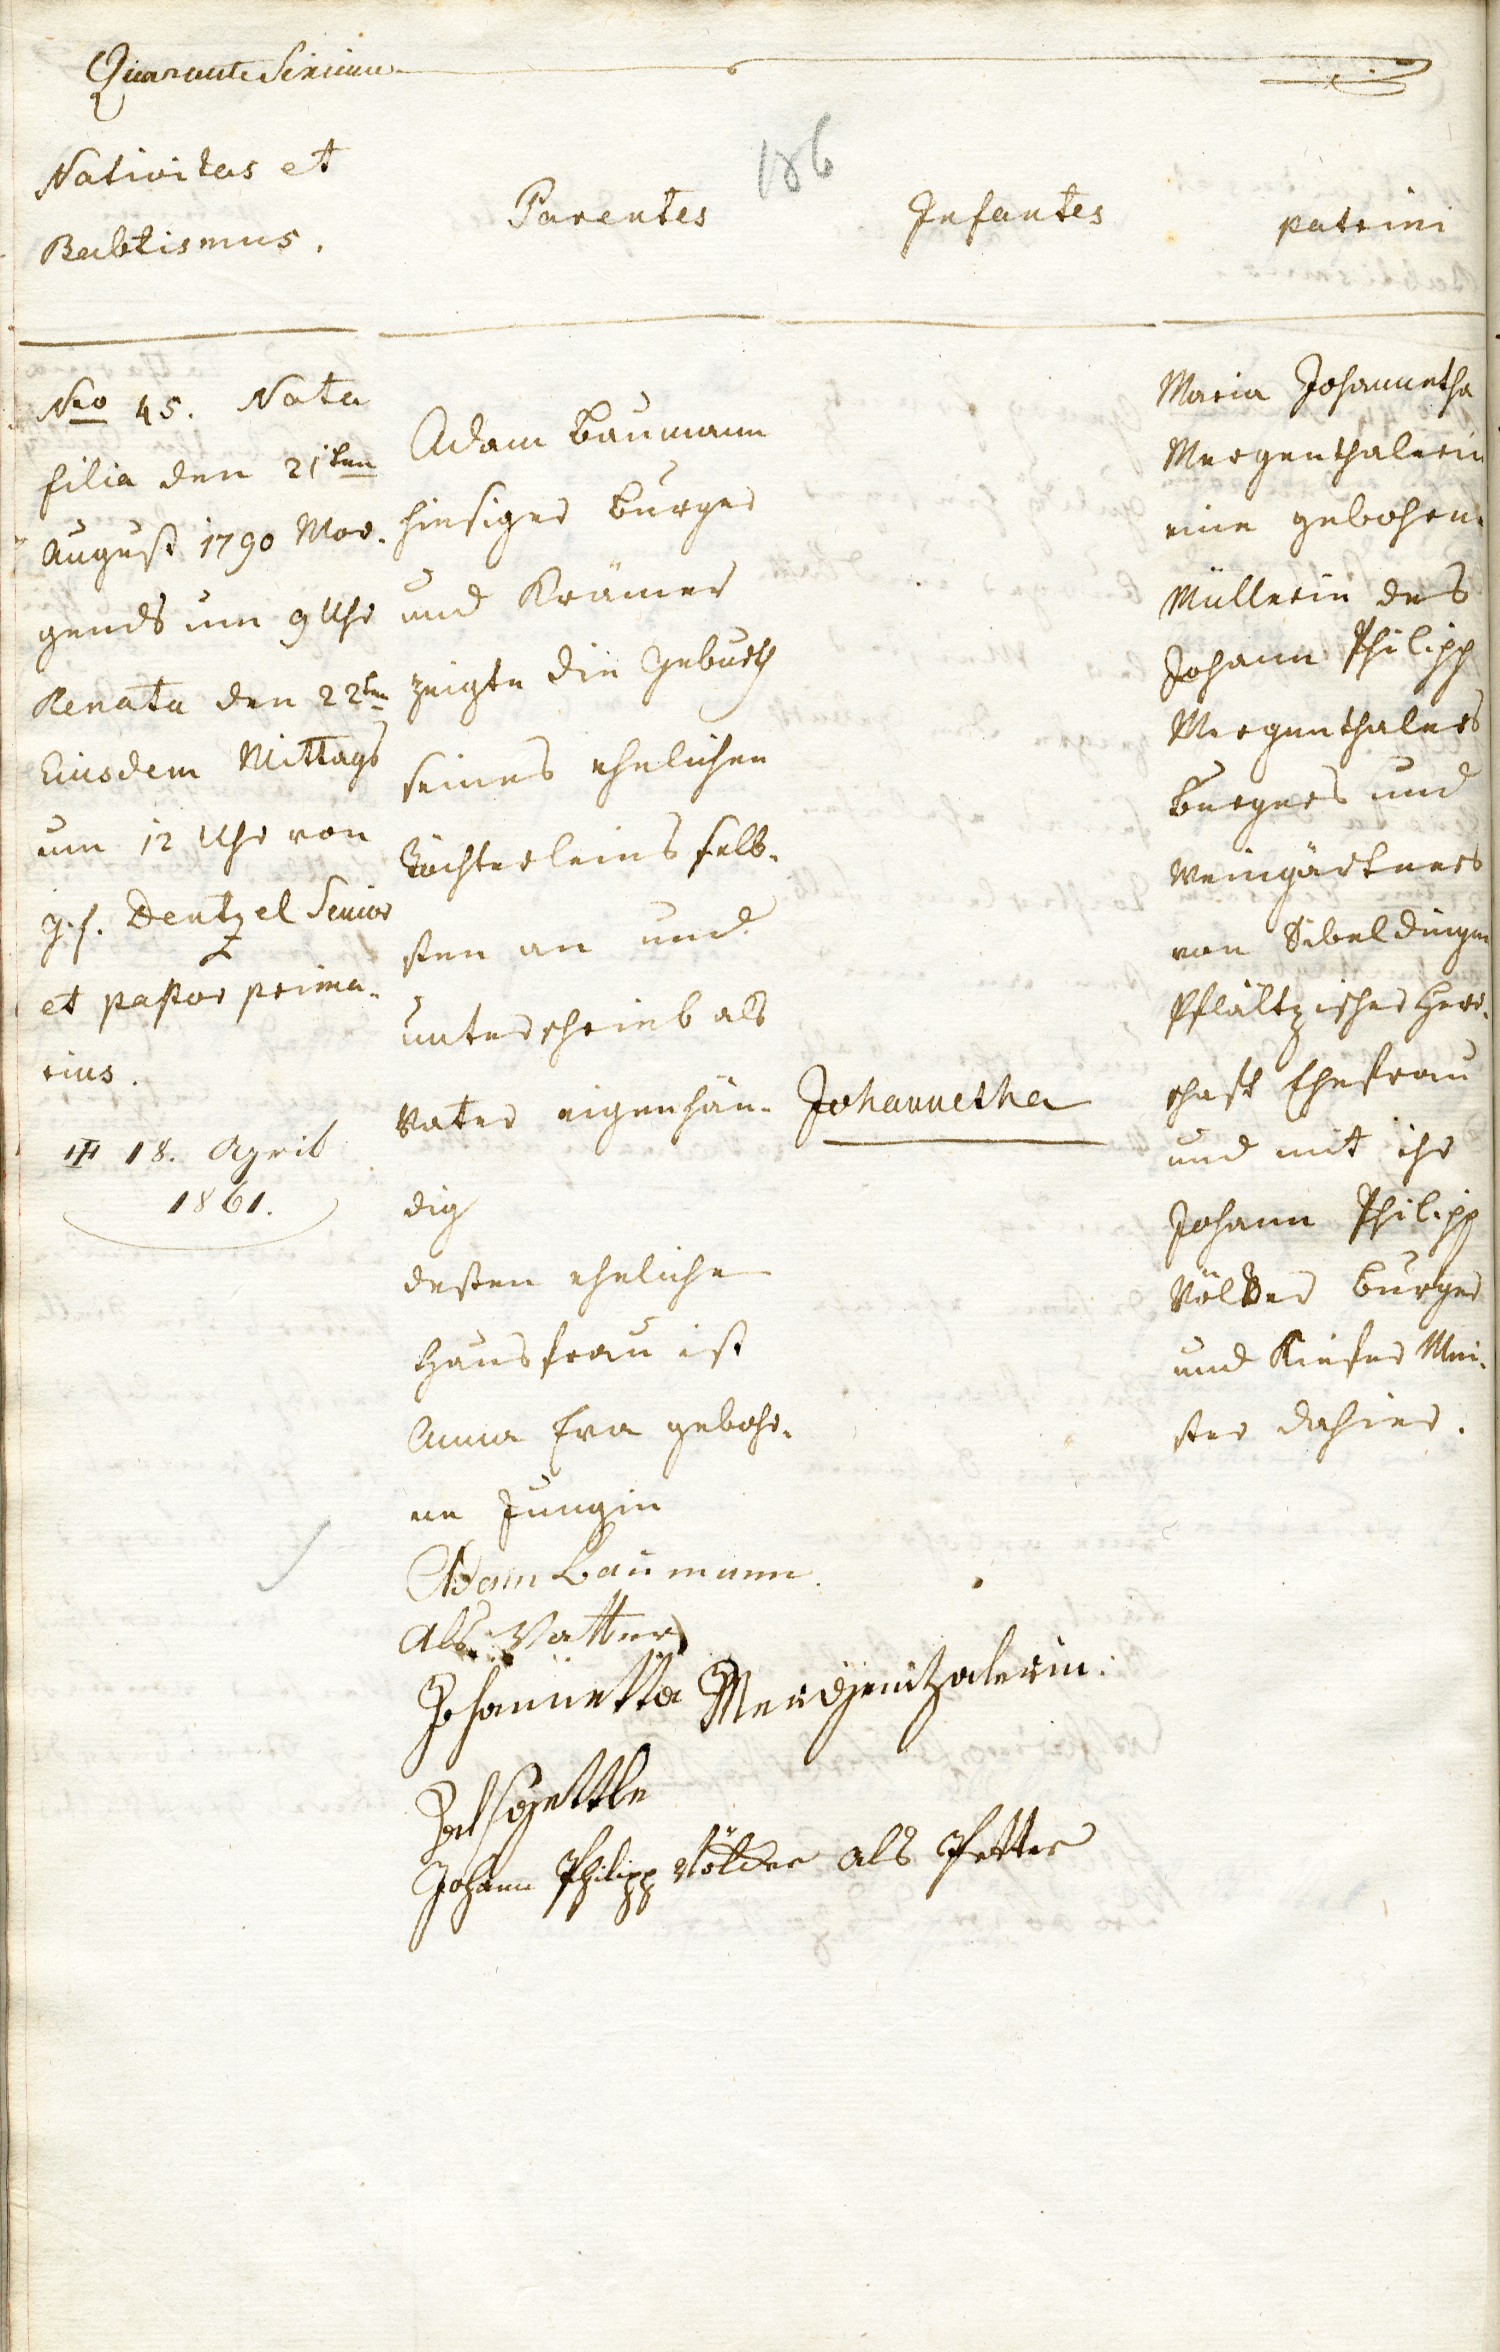 Quarante Sixieme
186
Nativitas et
Babtismus.
Parentes
Infantes
patrini
Nro 45. Nata
filia den 21ten
August 1790 Mor-
gends um 9 Uhr
Renata den 22ten
Eiusdem Mittags
um 12 Uhr von
g. f. Dentzel Senior
et pastor prima-
rius.
18. April
1861.
Adam Baumann
hiesiger Burger
und Krämer
zeigte die Geburth
seines ehelichen
Töchterleins selb-
sten an und
unterschrieb als
Vater eigenhän-
dig
dessen eheliche
Hausfrau ist
Anna Eva gebohr-
ne Jungin
Adam Baumann.
als Vatter
Johannetta Mergenthalerin.
als Gettle
Johann Philipp Völcker als Petter
Johannetha
Maria Johannetha
Mergenthalerin
eine gebohrn-
Müllerin des
Johann Philipp
Mergenthalers
Burgers und
Weingärtners
von Sibeldingen
Pfältzischer Herr-
schaft Ehefrau
und mit ihr
Johann Philipp
Völker Burger
und Kiefer Mei-
ster dahier.